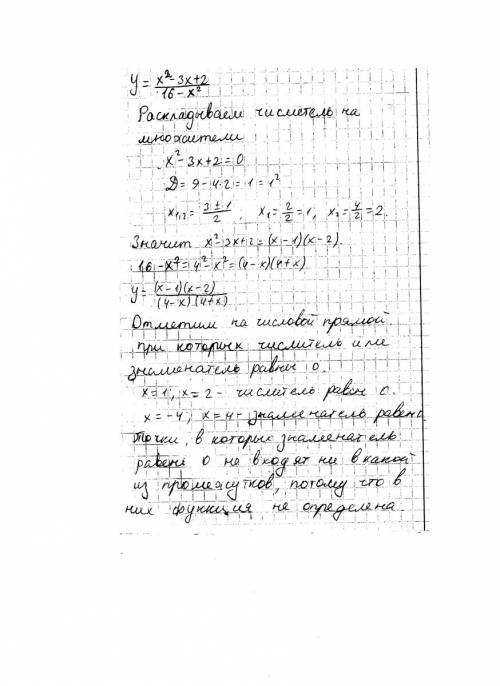 y = x²-3x+2 / 16-x²
Раскладываем числитель на
множители
x²-3x+2=0
D= 9-4·2=1=1²
x₁,₂= 3±1 / 2, x₁= 2/2 =1, x₂= 4/2 =2.
Значит x²-3x+2=(x-1)(x-2).
16-x²=4²-x²=(4-x)(4+x)
y= (x-1)(x-2) / (4-x)(4+x)
Отметим на числовой прямой
при которых числитель или
знаменатель равны 0.
x=1; x=2 - числитель равен 0.
x=-4; x=4 - знаменатель равен 0
Точки, в которых знаменатель
равен 0 не входят ни в какой
из промежутков, потому что в
них функция не определена.